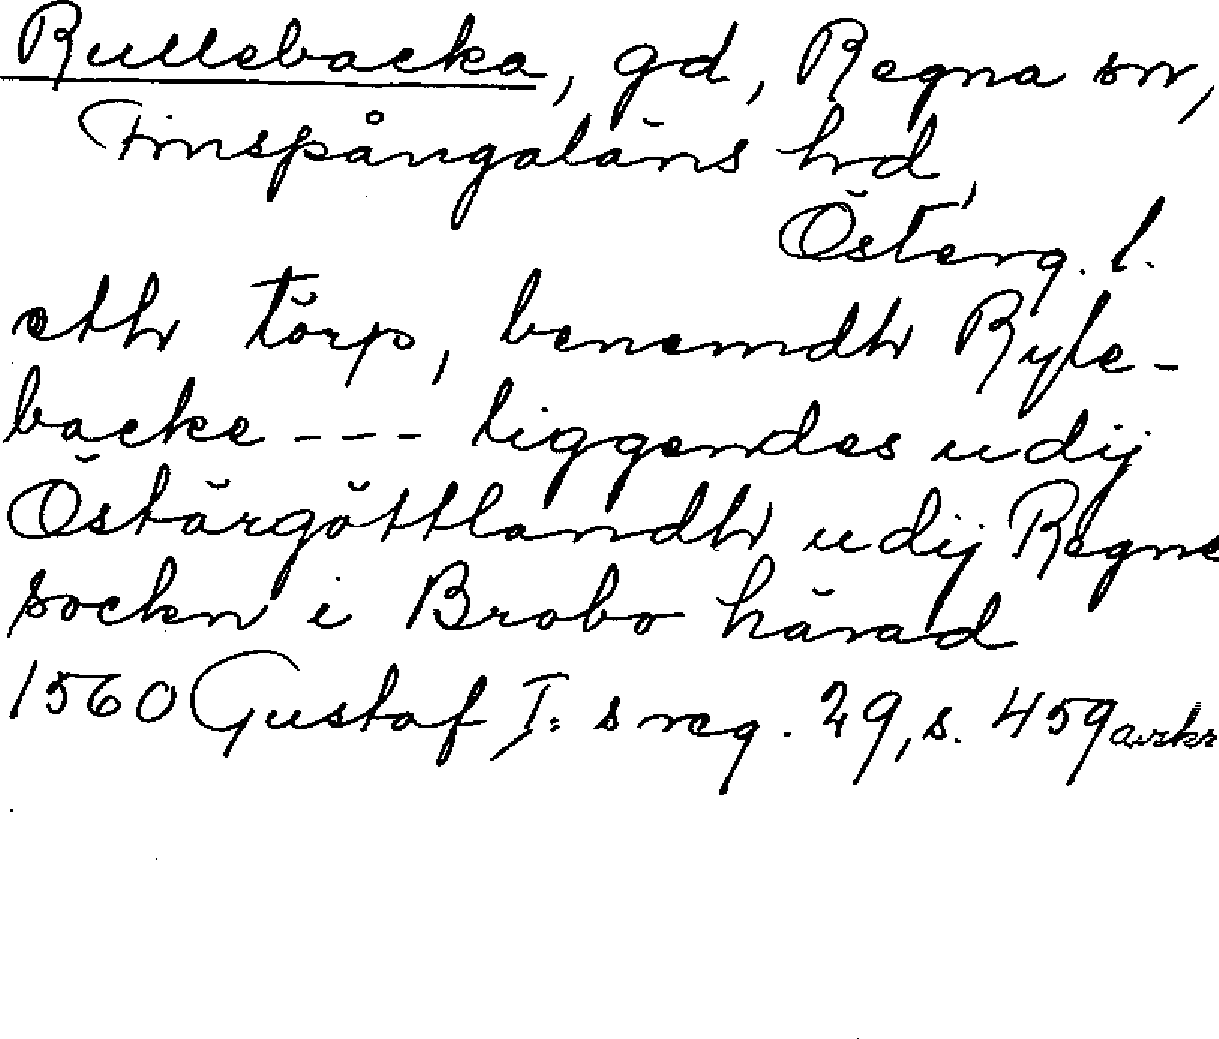 Rullebacka, gd, Regna sn,
Finspångaläns hd,
Österg. l.
eth törp, benemdh Ryle-
backe --- liggendes udij
Östärgöttlandh udij Regne
sockn i Brobo härad
1560 Gustaf I:s reg. 29, s. 459 avskr